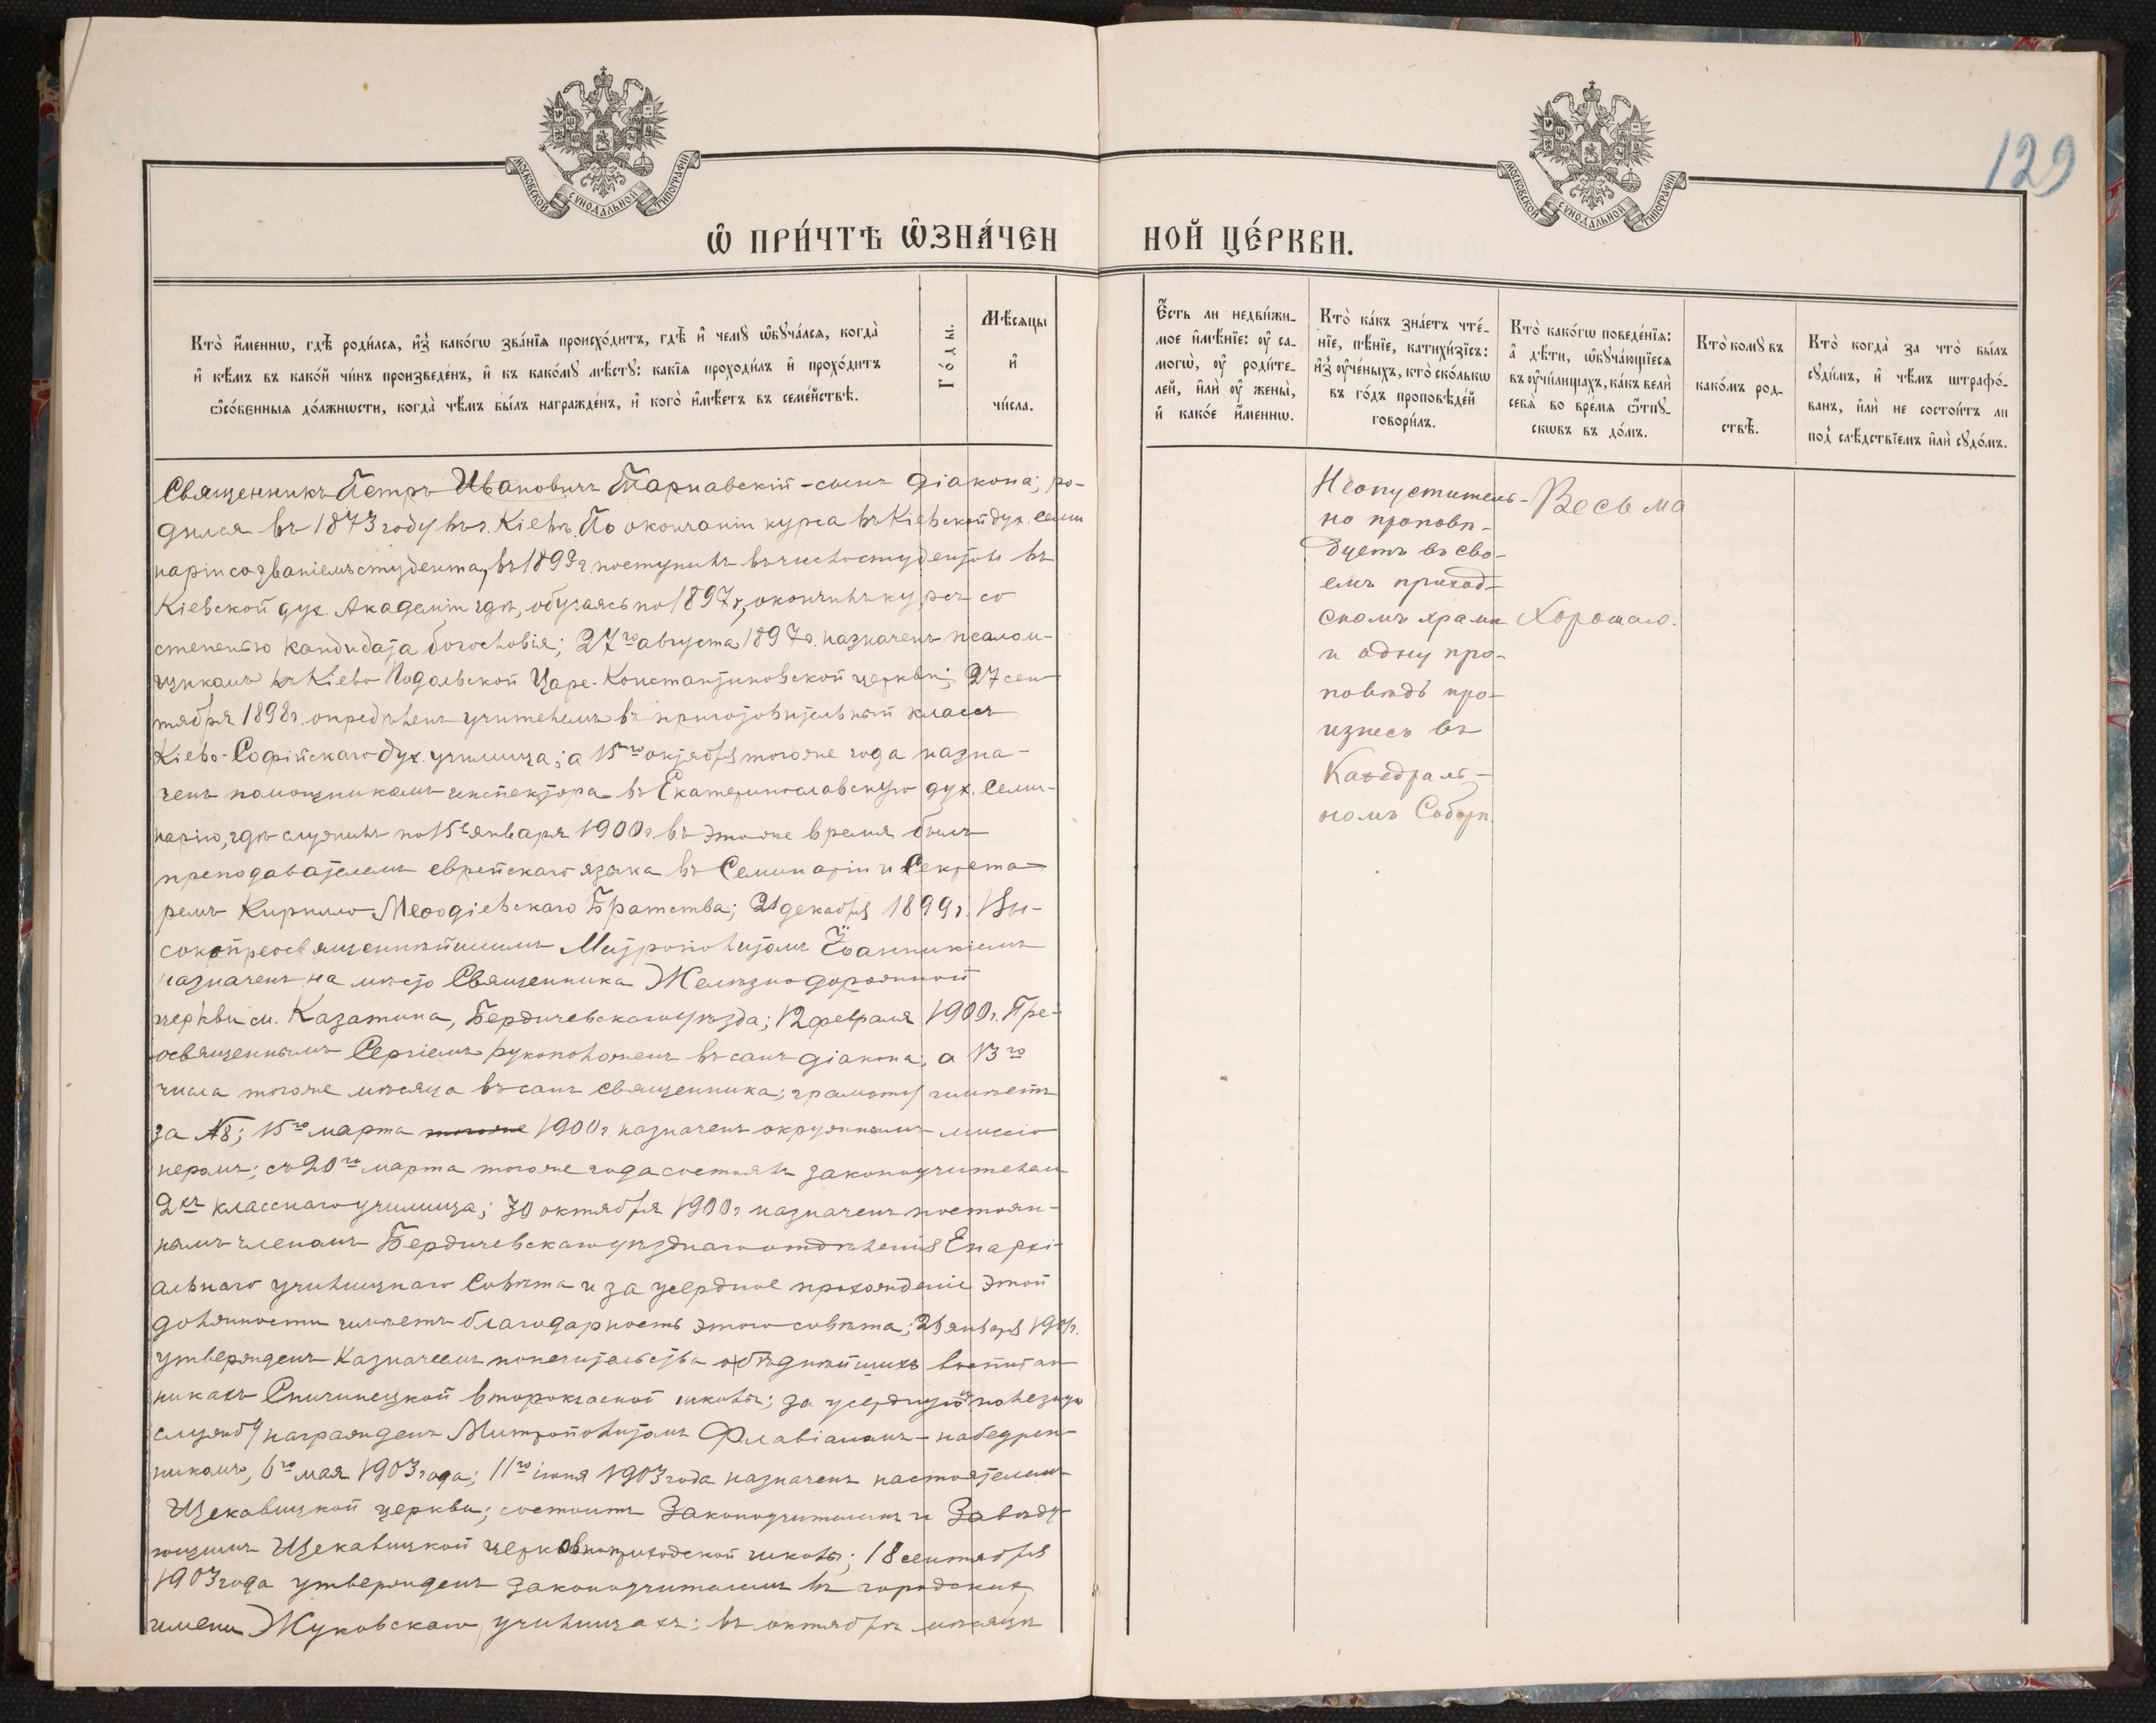 МОСКОВСКОЙ СѴНОДАЛЬНОЙ ТИПОГРАФІИ
МОСКОВСКОЙ СѴНОДАЛЬНОЙ ТИПОГРАФІИ
129
Ѡ҆ ПРИ́ЧТѢ Ѡ҆ЗНА́ЧЕН НОЙ ЦЕ́РКВИ.
Кто̀ и҆́менню, гдѣ̀ роди́лсѧ, и҆з̾ како́гѡ зва́нїѧ происхо́дитъ, гдѣ̀ и҆ чемꙋ̀ ѡ҆бꙋча́лсѧ, когда̀
и҆ кѣ́мъ въ како́й чи́нъ произведе́нъ, и҆ къ како́мꙋ мѣ́стꙋ: какі̑ѧ проходи́лъ и҆ прохо́дитъ
ѻ҆со́бенныѧ до́лжнѡсти, когда̀ чѣ́мъ бы́лъ награжде́нъ, и҆ кого̀ и҆мѣ́етъ въ семе́йствѣ.
Го́ды.
Мѣ́сѧцы
и҆
чи́сла.
Е҆́сть ли недви́жи-
мое и҆мѣ́нїе: оу҆ са-
могѡ̀, оу҆ роди́те-
лей, и҆лѝ оу҆ жены̀,
и҆ како́е и҆́меннѡ.
Кто̀ ка́къ зна́етъ чте́-
нїе, пѣ́нїе, катихи́зїсъ:
и҆з̾ оу҆че́ныхъ, кто̀ ско́лькѡ
въ го́дъ проповѣ́дей
говори́лъ.
Кто̀ како́гѡ поведе́нїѧ:
а҆ дѣ́ти, ѡ҆бꙋча́ющїесѧ
въ оу҆чи́лищахъ, ка́къ велѝ
себѧ̀ во вре́мѧ ѿпꙋ-
скѡвъ въ до́мъ.
Кто̀ комꙋ̀ въ
како́мъ род-
ствѣ̀.
Кто̀ когда̀ за что̀ бы́лъ
сꙋди́мъ, и҆ чѣ́мъ штрафо́-
ванъ, и҆лѝ не состои́тъ ли
под̾ слѣ́дствїемъ и҆лѝ сꙋдо́мъ.
Священникъ Петръ Ивановичъ Тарнавскій - сынъ діакона; ро-
дился въ 1873 году въ г. Кіевѣ. По окончаніи курса въ Кіевской дух. Семи
наріи со званіемъ студента, въ 1893 г. поступилъ въ число студентовъ въ
Кіевской дух. Академіи гдѣ, обучаясь по 1897 г., окончилъ курсъ со
степенью кандидата богословія; 27го августа 1897 г. назначенъ псалом-
щикомъ къ Кіево Подольской Царе-Константиновской церкви; 27 сен-
тября 1898 г. опредѣленъ учителемъ въ приготовительный классъ
Кіево-Софійскаго дух. училища; а 15го октября тогоже года назна-
ченъ помощникомъ инспектора въ Екатеринославскую дух. Семи-
нарію, гдѣ служилъ по 15е января 1900 г. въ этоже время былъ
преподавателемъ еврейскаго языка въ Семинаріи и Секрета-
ремъ Кирилло-Меѳодіевскаго Братства; 21 декабря 1899 г. Вы-
сокопреосвященнѣйшимъ Митрополитомъ Іоанникіемъ
назначенъ на мѣсто Священника Желѣзнодорожной
церкви м. Казатина, Бердичевскаго уѣзда; 12 февраля 1900 г. Пре-
освященнымъ Сергіемъ рукоположенъ въ санъ діакона; а 13го
числа тогоже мѣсяца въ санъ священника; грамоту имѣетъ
за №8; 15го марта тогоже 1900 г. назначенъ окружнымъ миссіо
неромъ; съ 20го марта тогоже года состоялъ законоучителемъ
2хъ класснаго училища; 30 октября 1900 г. назначенъ постоян-
нымъ членомъ Бердичевскаго уѣзднаго отдѣленія Епархі-
альнаго училищнаго Совѣта и за усердное прохожденіе этой
должности имѣетъ благодарность этого совѣта; января
утвержденъ Казначеемъ попечительства о бѣднѣйшихъ воспитан
никахъ Спичинецкой второкласной школы; за усердную и полезную
службу награжденъ Митрополитомъ Флавіаномъ - набедрен-
никомъ, 6го мая 1903 года; 11го іюня 1903 года назначенъ настоятелемъ
Щекавицкой церкви; состоитъ Законоучителемъ и Завѣду-
ющимъ Щекавицкой церковноприходской школы; 18 сентября
1903 года утвержденъ законоучителемъ въ городскихъ
имени Жуковскаго училищахъ; въ октябрѣ мѣсяцѣ
Неопуститель-
но проповѣ-
дуетъ въ сво-
емъ приход-
скомъ храмѣ
и одну про-
повѣдь про-
изнесъ въ
Каѳедраль-
номъ Соборѣ.
Весьма
Хорошаго.